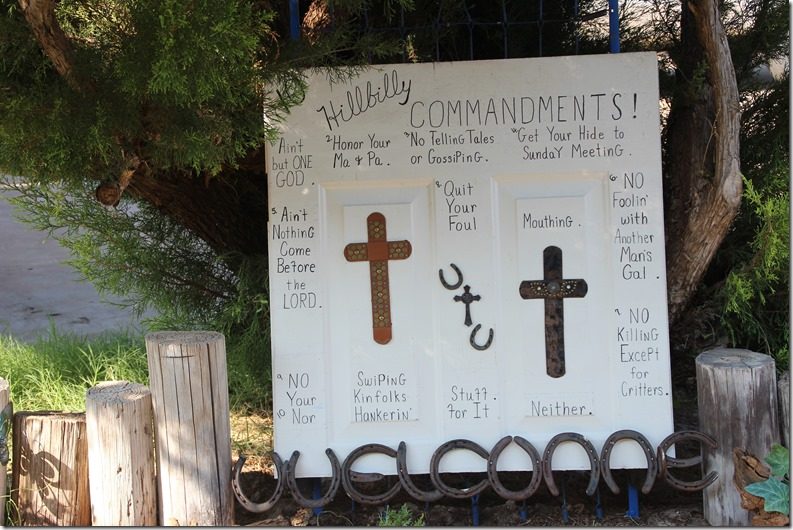 Hillbilly COMMANDMENTS!
Ain't
but ONE
GOD.
2 Honor Your
Ma & Pa.
No Telling Tales
or GossiPing.
Get Your Hide to
Sunday Meeting.
5. Ain't
Nothing
Come
Before
the
LORD.
Quit
Your
Foul
Mouthing.
6. NO
Foolin'
with
Another
Man's
Gal.
NO
Killing
Except
for
Critters.
9 NO SwiPing
Your Kinfolks Stuff
10 Nor Hankerin' For It Neither.
WELCOME